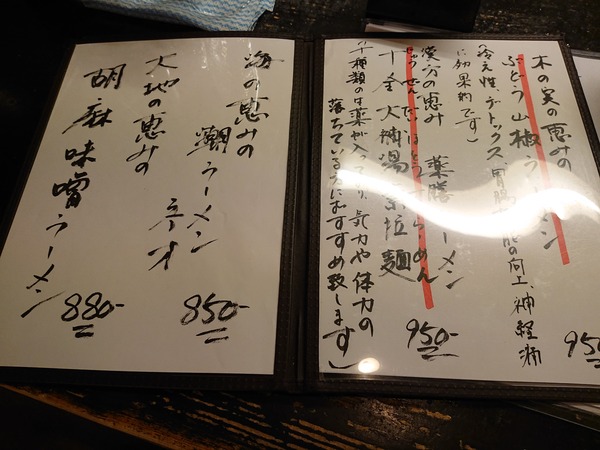 木の実の恵みの
ぶどう山椒ラーメン
950-
(冷え性、デトックス、胃腸機能の向上、神経痛
に効果的です)
漢方の恵み 薬膳ラーメン
じゅうぜんたいほとうらーめん
十全大補湯 拉麺
950-
(十種類の生薬が入っており、気力や体力の
落ちている方におすすめ致します)
海の恵みの
潮ラーメン
850-
大地の恵みの
胡麻味噌ラーメン
880-